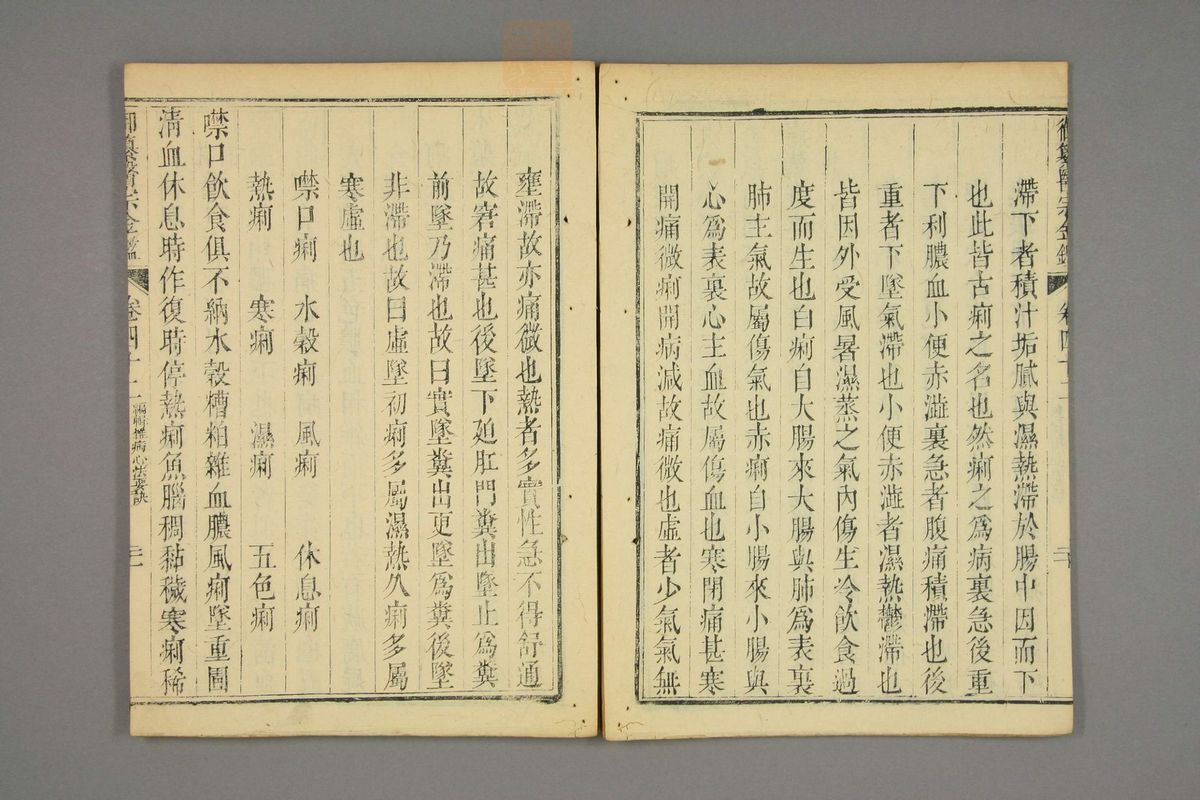 御纂醫宗金鑑 卷四十二
滯下者積汁垢膩與濕熱滯於腸中因而下
也此皆古痢之名也然痢之爲病裏急後重
下利膿血小便赤澁裏急者腹痛積滯也後
重者下墜氣滯也小便赤澁者濕熱鬱滯也
皆因外受風暑濕蒸之氣內傷生冷飲食過
度而生也白痢自大腸來大腸與肺爲表裏
肺主氣故屬傷氣也赤痢自小腸來小腸與
心爲表裏心主血故屬傷血也寒閉痛甚寒
開痛微痢開病減故痛微也虛者少氣氣無
壅滯故亦痛微也熱者多實性急不得舒通
故窘痛甚也後墜下廹肛門糞出墜止爲糞
前墜乃滯也故曰實墜糞出更墜爲糞後墜
非滯也故曰虛墜初痢多屬濕熱久痢多屬
寒虛也
噤口痢 水穀痢 風痢 休息痢
熱痢 寒痢 濕痢 五色痢
噤口飲食俱不納水穀糟粕雜血膿風痢墜重圊
清血休息時作復時停熱痢魚腦稠黏穢寒痢稀
御纂醫宗金鑑 卷四十二 編輯雜病心法要訣